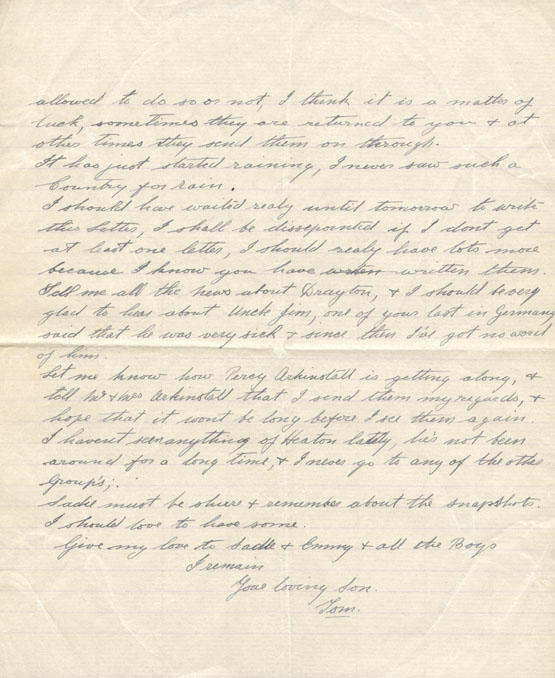 allowed to do so or not, I think it is a matter of
luck, sometimes they are returned to you & at
other times they send them on through.
It has just started raining, I never saw such a
Country for rain.
I should have waited realy until tomorrow to write
this letter, I shall be dissepointed if I dont get
at least one letter, I should realy have lots more
because I know you have written them.
Tell me all the news about Drayton, & I should be very
glad to hear about Uncle Jim, one of your last in Germany
said that he was very sick & since then I've got no word
of him.
Let me know how Percy Arkinstall is getting along, &
tell Mr & Mrs Arkinstall that I send them my regards, &
hope that it wont be long before I see them again.
I havent seen anything of Heaton lately, he's not been
around for a long time, & I never go to any of the other
Group's;.
Sadie must be shure & remember about the snapshots.
I should love to have some.
Give my love to Sadie & Emmy & all the Boys
I remain
Your loving Son.
Tom.